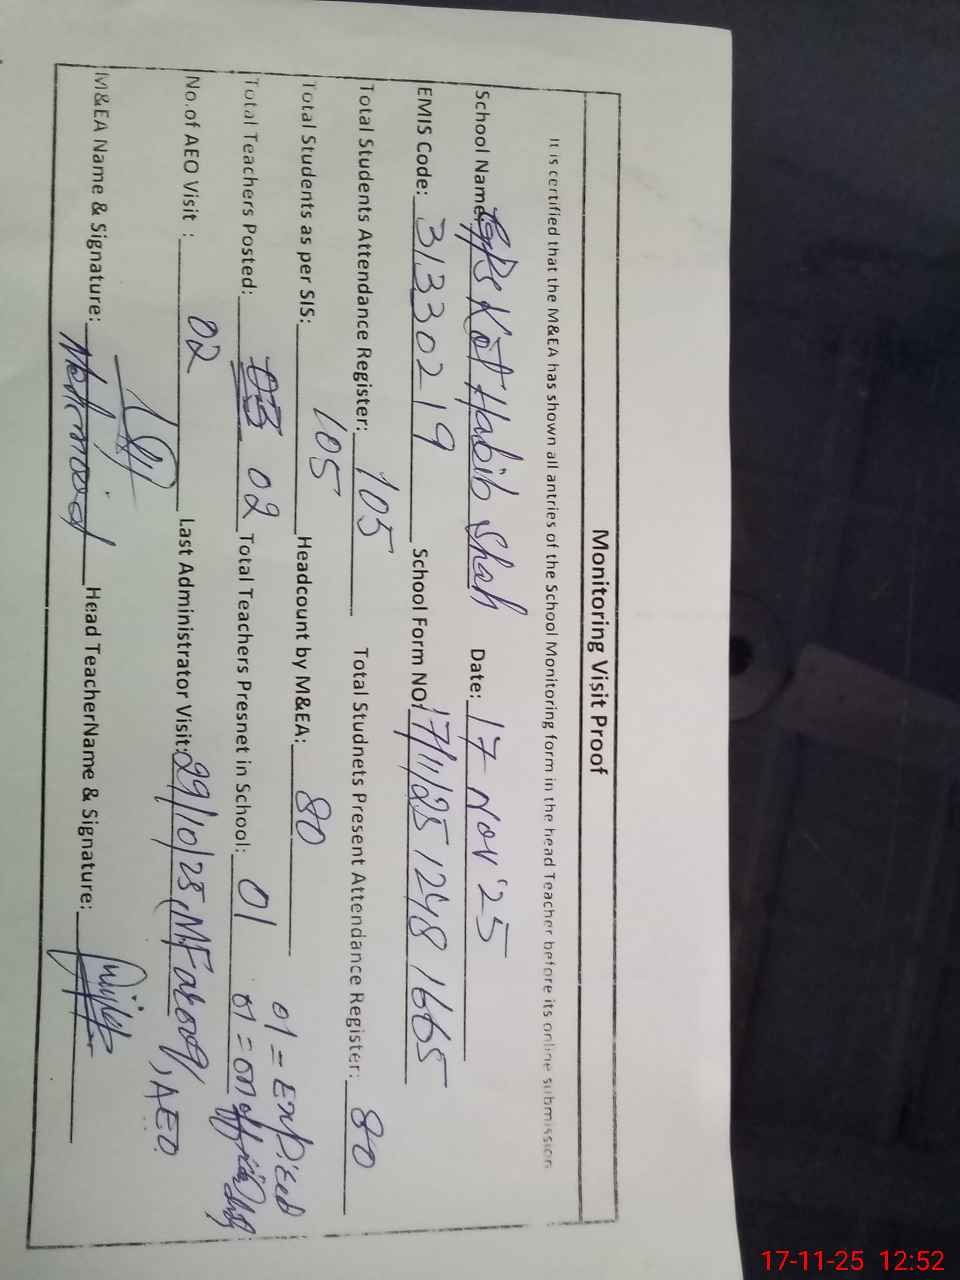 Monitoring Visit Proof
It is certified that the M&EA has shown all antries of the School Monitoring form in the head Teacher before its online submission
School Name: GPS Kot Habib Shah Date: 17 Nov 25
EMIS Code: 31330219 School Form NO: 17/11/25 1248 1665
Total Students Attendance Register: 105 Total Studnets Present Attendance Register: 80
Total Students as per SIS: 105 Headcount by M&EA: 80
01 = Expired
Total Teachers Posted: 03 02 Total Teachers Presnet in School: 01 01 = on official duty
No.of AEO Visit : 02 Last Administrator Visit: 29/10/25, M Farooq, AEO
M&EA Name & Signature: Head TeacherName & Signature:
17-11-25 12:52